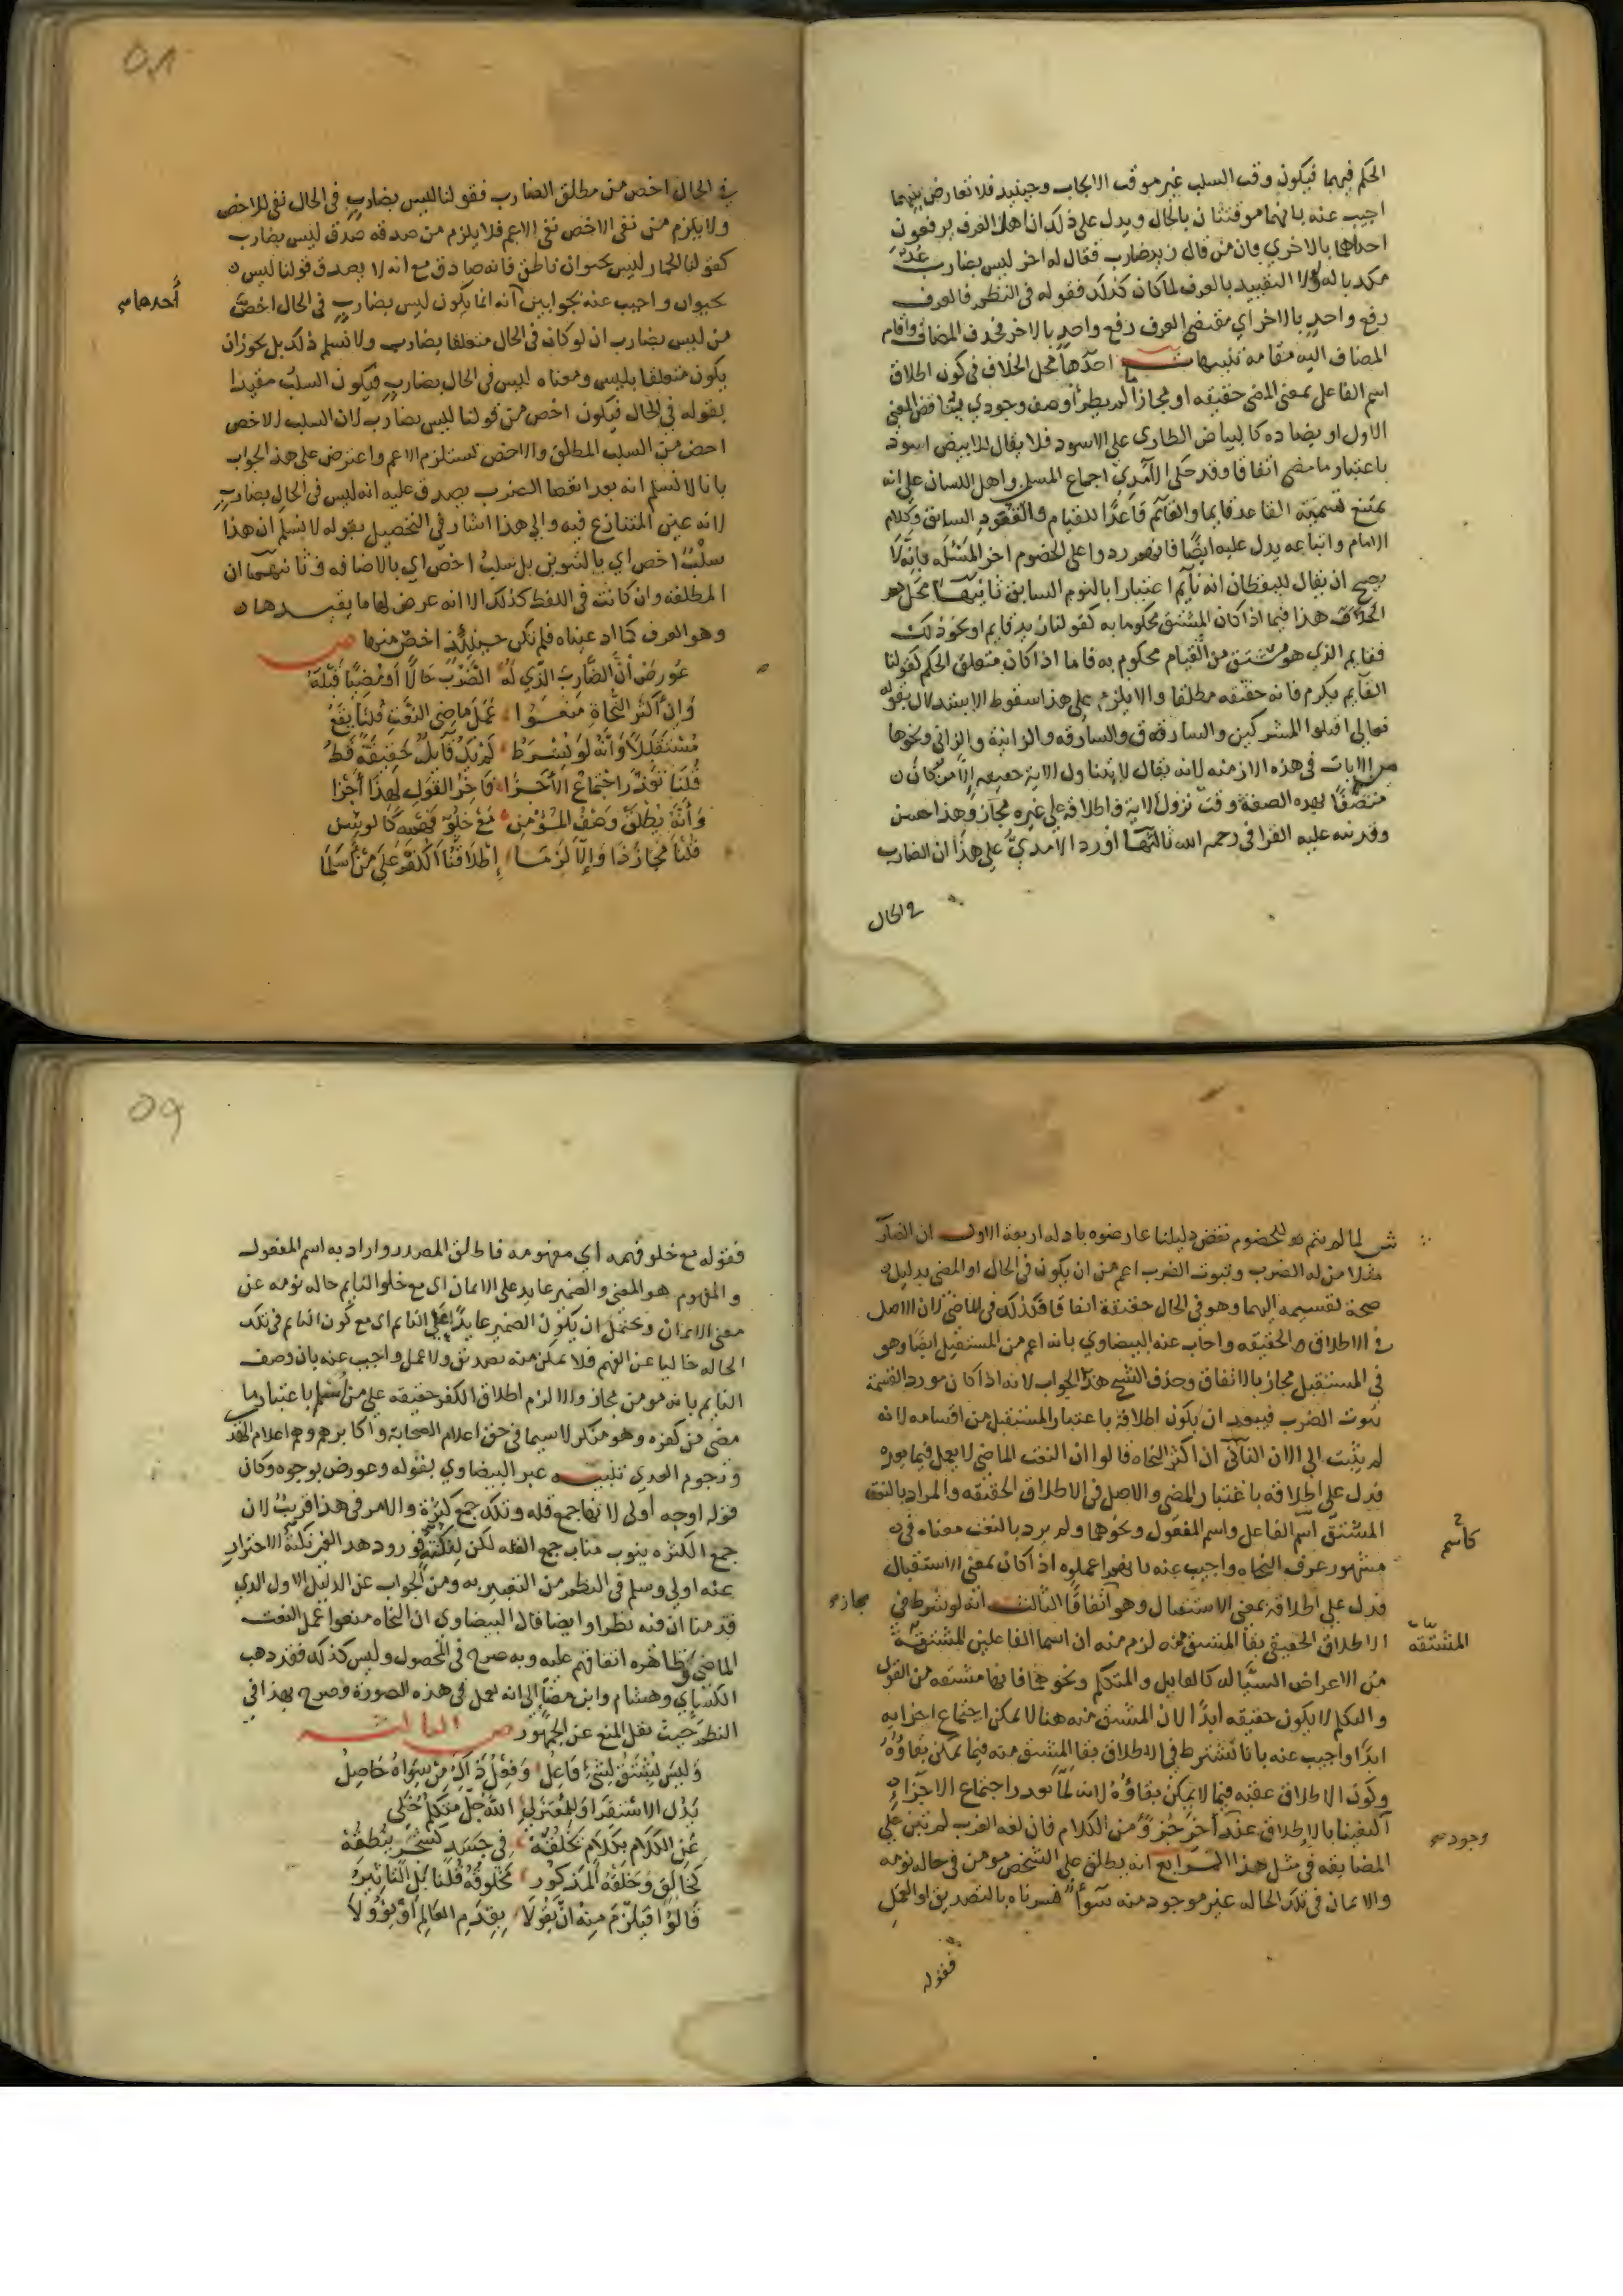 الحكم فيهما فيكون وقت السلب غير موقت الايجاب وحينيد فلا تعارض بينهما
اجيب عنه بانهما موقتتان بالحال ويدل على ذلك ان اهل العرف يرفعون
احداهما بالاخري فان من قال زيد ضارب فقال له اخر ليس بضارب عد
مكذبا له ولولا التقييد بالعرف لما كان كذلك فقوله في النظم فالعرف
رفع واحد بالاخر اي مقتضي العرف رفع واحد بالاخر فحذف المضاف واقام
المضاف اليه مقامه تنبيهات احدها محل الخلاف في كون اطلاق
اسم الفاعل بمعنى المضي حقيقه او مجازا لم يطرأ وصف وجودي يناقض المعني
الاول او يضاده كالبياض الطاري على الاسود فلا يقال للابيض اسود
باعتبار ما مضي اتفاقا وقد حكى الآمدي اجماع المسلمين واهل اللسان على انه
يمتنع تسميه القاعد قايما والقائم قاعدا للقيام والقعود السابق وكلام
الامام واتباعه يدل عليه ايضا فانهم ردوا على الخصوم اخر المسئله بانه لا
يصح ان يقال لليقظان انه نايم اعتبارا بالنوم السابق ثانيها محل
الخلاف هذا فيما اذا كان المشتق محكوما به كقولنا زيد قايم او نحو ذلك
فقايم الذي هو مشتق من القيام محكوم به فاما اذا كان متعلق الحكم كقولنا
القايم يكرم فانه حقيقه مطلقا والا يلزم على هذا سقوط الاستدلال بقوله
تعالى اقتلوا المشركين والسارق والسارقه والزانية والزاني ونحوها
من الايات في هذه الازمنه لانه يقال لا يتناول الاية حقيقه الا من كان
متصفا بهذه الصفة وقت نزول الاية واطلاقه على غيره مجاز وهذا حسن
وقد نبه عليه القرافي رحمه الله ثالثها اورد الآمدي على هذا ان الضارب
في الحال
٥٨
في الحال اخص من مطلق الضارب فقولنا ليس بضارب في الحال نفي للاخص
ولا يلزم من نفي الاخص نفي الاعم فلا يلزم من صدقه صدق ليس بضارب
كقولنا الحمار ليس بحيوان ناطق فانه صادق مع انه لا يصدق قولنا ليس
بحيوان واجيب عنه بجوابين انه انما يكون ليس بضارب في الحال اخص
أحدهما
من ليس بضارب ان لو كان في الحال متعلقا بضارب ولا نسلم ذلك بل يجوز ان
يكون متعلقا بليس ومعناه ليس في الحال بضارب فيكون السلب مقيدا
بقوله في الحال فيكون اخص من قولنا ليس بضارب لان السلب الاخص
اخص من السلب المطلق والاخص تستلزم الاعم واعترض على هذا الجواب
بانا لا نسلم انه بعد انقضا الضرب يصدق عليه انه ليس في الحال بضارب
لانه عين المتنازع فيه والي هذا اشار في التحصيل بقوله لا نسلم ان هذا
سلب اخص اي بالتنوين بل سلب اخص اي بالاضافه وثانيهما ان
المطلقه وان كانت في اللفظ كذلك الا انه عرض لها ما يقيدها
وهو العرف كما ادعيناه فلم تكن حينئذ اخص منها ص
عورض أن الضارب الذي له الضرب حالا أو مضيا قبله
وإن أكثر النحاة منعوا عمل ماضي النعت قلنا يقع
مستقبلا وأنه لو يشرط لم يك قايل حقيقة قط
قلنا تعذر اجتماع الأجزا فآخر القول لهذا أجزا
وأنه يطلق وصف المؤمن مع خلو فهمه كالوسن
قلنا مجاز ذا وإلا لزما إطلاقنا الكفر على من أسلما
ش لما لم يتم للخصوم نقض دليلنا عارضوه بادله اربعة الاول ان الضارب
مثلا من له الضرب وثبوت الضرب اعم من ان يكون في الحال او المضي بدليل
صحة تقسيمه اليهما وهو في الحال حقيقة اتفاقا فكذلك في الماضي لان الاصل
في الاطلاق الحقيقه واجاب عنه البيضاوي بانه اعم من المستقبل ايضا وهو
في المستقبل مجاز بالاتفاق وحذف الشيخ هذا الجواب لانه اذا كان مورد القسمة
ثبوت الضرب فيبعد ان يكون اطلاقه باعتبار المستقبل من اقسامه لانه
لم يثبت الى الان الثاني ان اكثر النحاه قالوا ان النعت الماضي لا يعمل فيما بعده
فدل على اطلاقه باعتبار المضي والاصل في الاطلاق الحقيقه والمراد بالنعت
المشتق اسم الفاعل واسم المفعول ونحوهما ولم يرد بالنعت معناه في
كاسم
مشهور عرف النحاه واجيب عنه بانهم اعملوه اذا كان بمعنى الاستقبال
فدل على اطلاقه بمعنى الاستقبال وهو اتفاقا الثالث انه لو شرط في
مجاز
الاطلاق الحقيقي بقا المشتق منه لزم منه ان اسما الفاعلين المشتقة
المشتقه
من الاعراض السيالة كالقايل والمتكلم ونحوهما فانها مشتقه من القول
والتكلم لا يكون حقيقه ابدا لان المشتق منه هنا لا يمكن اجتماع اجزايه
ابدا واجيب عنه بانا نشترط في الاطلاق بقا المشتق منه فيما يمكن بقاؤه
وكون الاطلاق عقبه فيما لا يمكن بقاؤه لانه لما تعذر اجتماع الاجزاء
اكتفينا بالاطلاق عند اخر جزؤ من الكلام فان لغه العرب لم تبن على
وجود
المضايقه في مثل هذا الرابع انه يطلق على الشخص مومن في حاله نومه
والايمان في تلك الحاله غير موجود منه سوأ فسرناه بالتصديق او العمل
فقوله
٥٩
فقوله مع خلو فهمه اي مفهومه فاطلق المصدر واراد به اسم المفعول
والمفهوم هو المعني والضمير عايد على الايمان اي مع خلو النايم حاله نومه عن
معني الايمان ويحتمل ان يكون الضمير عايدا على النايم اي مع كون النايم في تلك
الحاله خاليا عن الفهم فلا يمكن منه تصديق ولا عمل واجيب عنه بان وصف
النايم بانه مومن مجاز والا لزم اطلاق الكفر حقيقه على من اسلم باعتبار ما
مضي من كفره وهو منكر لا سيما في حق اعلام الصحابة واكابرهم وهم اعلام الهدي
ونجوم الهدي تنبيه عبر البيضاوي بقوله وعورض بوجوه وكان
قوله اوجه أولى لانها جمع قله وتلك جمع كثرة والامر في هذا قريب لان
جمع الكثره ينوب مناب جمع القله لكن لنكتة ورود هدا الغير نكتة الاحتراز
عنه اولي وسلم في النظم من التعبير به ومن الجواب عن الدليل الاول الذي
قدمنا ان فيه نظرا وايضا قال البيضاوي ان النحاه منعوا عمل النعت
الماضي وظاهره اتفاقهم عليه وبه صرح في المحصول وليس كذلك فقد دهب
الكسائي وهشام وابن مضا الى انه يعمل في هذه الصورة وصرح بهذا في
النظم حيث نقل المنع عن الجمهور ص الثالثة
وليس يشتق لشيء فاعل وفعل ذاك من سواه حاصل
يدل الاستقرا وللمعتزلي الله جل متكلم خلي
عن الكلام بكلام يخلقه في جسد كشجر ينطقه
كخالق وخلقه المذكور مخلوقه قلنا بل التاثير
قالوا فيلزم منه ان يقولا بقدم العالم أو يؤولا